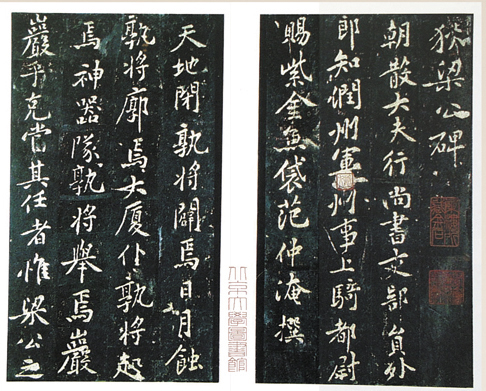 狄梁公碑
朝散大夫行尚書吏部員外
郎知潤州軍州事上騎都尉
賜紫金魚袋范仲淹撰
天地閉孰將闢焉日月蝕
孰將廓焉大廈仆孰將起
焉神器隊孰將舉焉巖
巖乎克當其任者惟梁公之
北京大學圖書館